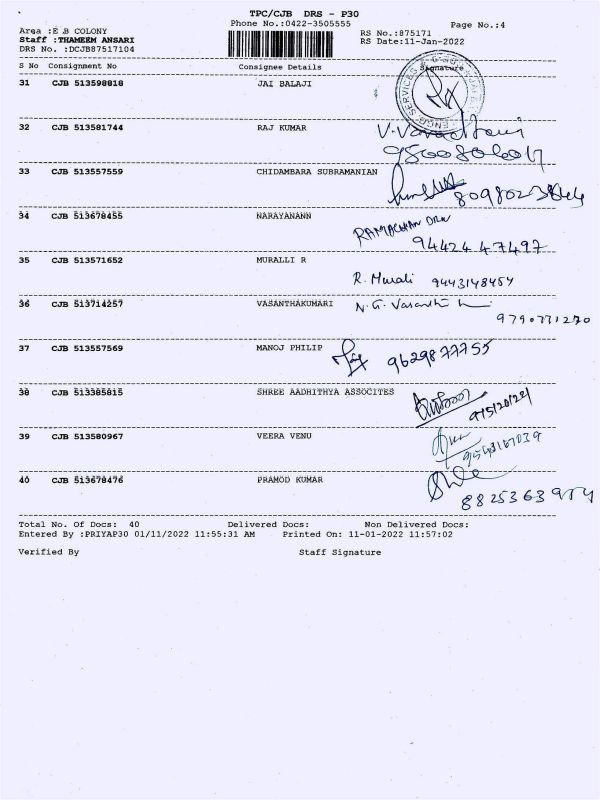 TPC/CJB DRS - P30
Phone No.:0422-3505555
Page No.:4
Area :E.B COLONY
RS No.:875171
Staff :THAMEEM ANSARI
RS Date:11-Jan-2022
DRS No. :DCJB87517104
S No Consignment No Consignee Details Signature
31 CJB 513598818 JAI BALAJI
32 CJB 513581744 RAJ KUMAR
33 CJB 513557559 CHIDAMBARA SUBRAMANIAN
34 CJB 513678455 NARAYANANN
94424 47497
35 CJB 513571652 MURALLI R
R. Murali 9443148454
36 CJB 513714257 VASANTHAKUMARI
9790771270
37 CJB 513557569 MANOJ PHILIP
9629877755
38 CJB 513385815 SHREE AADHITHYA ASSOCITES
39 CJB 513580967 VEERA VENU
40 CJB 513678476 PRAMOD KUMAR
Total No. Of Docs: 40 Delivered Docs: Non Delivered Docs:
Entered By :PRIYAP30 01/11/2022 11:55:31 AM Printed On: 11-01-2022 11:57:02
Verified By Staff Signature